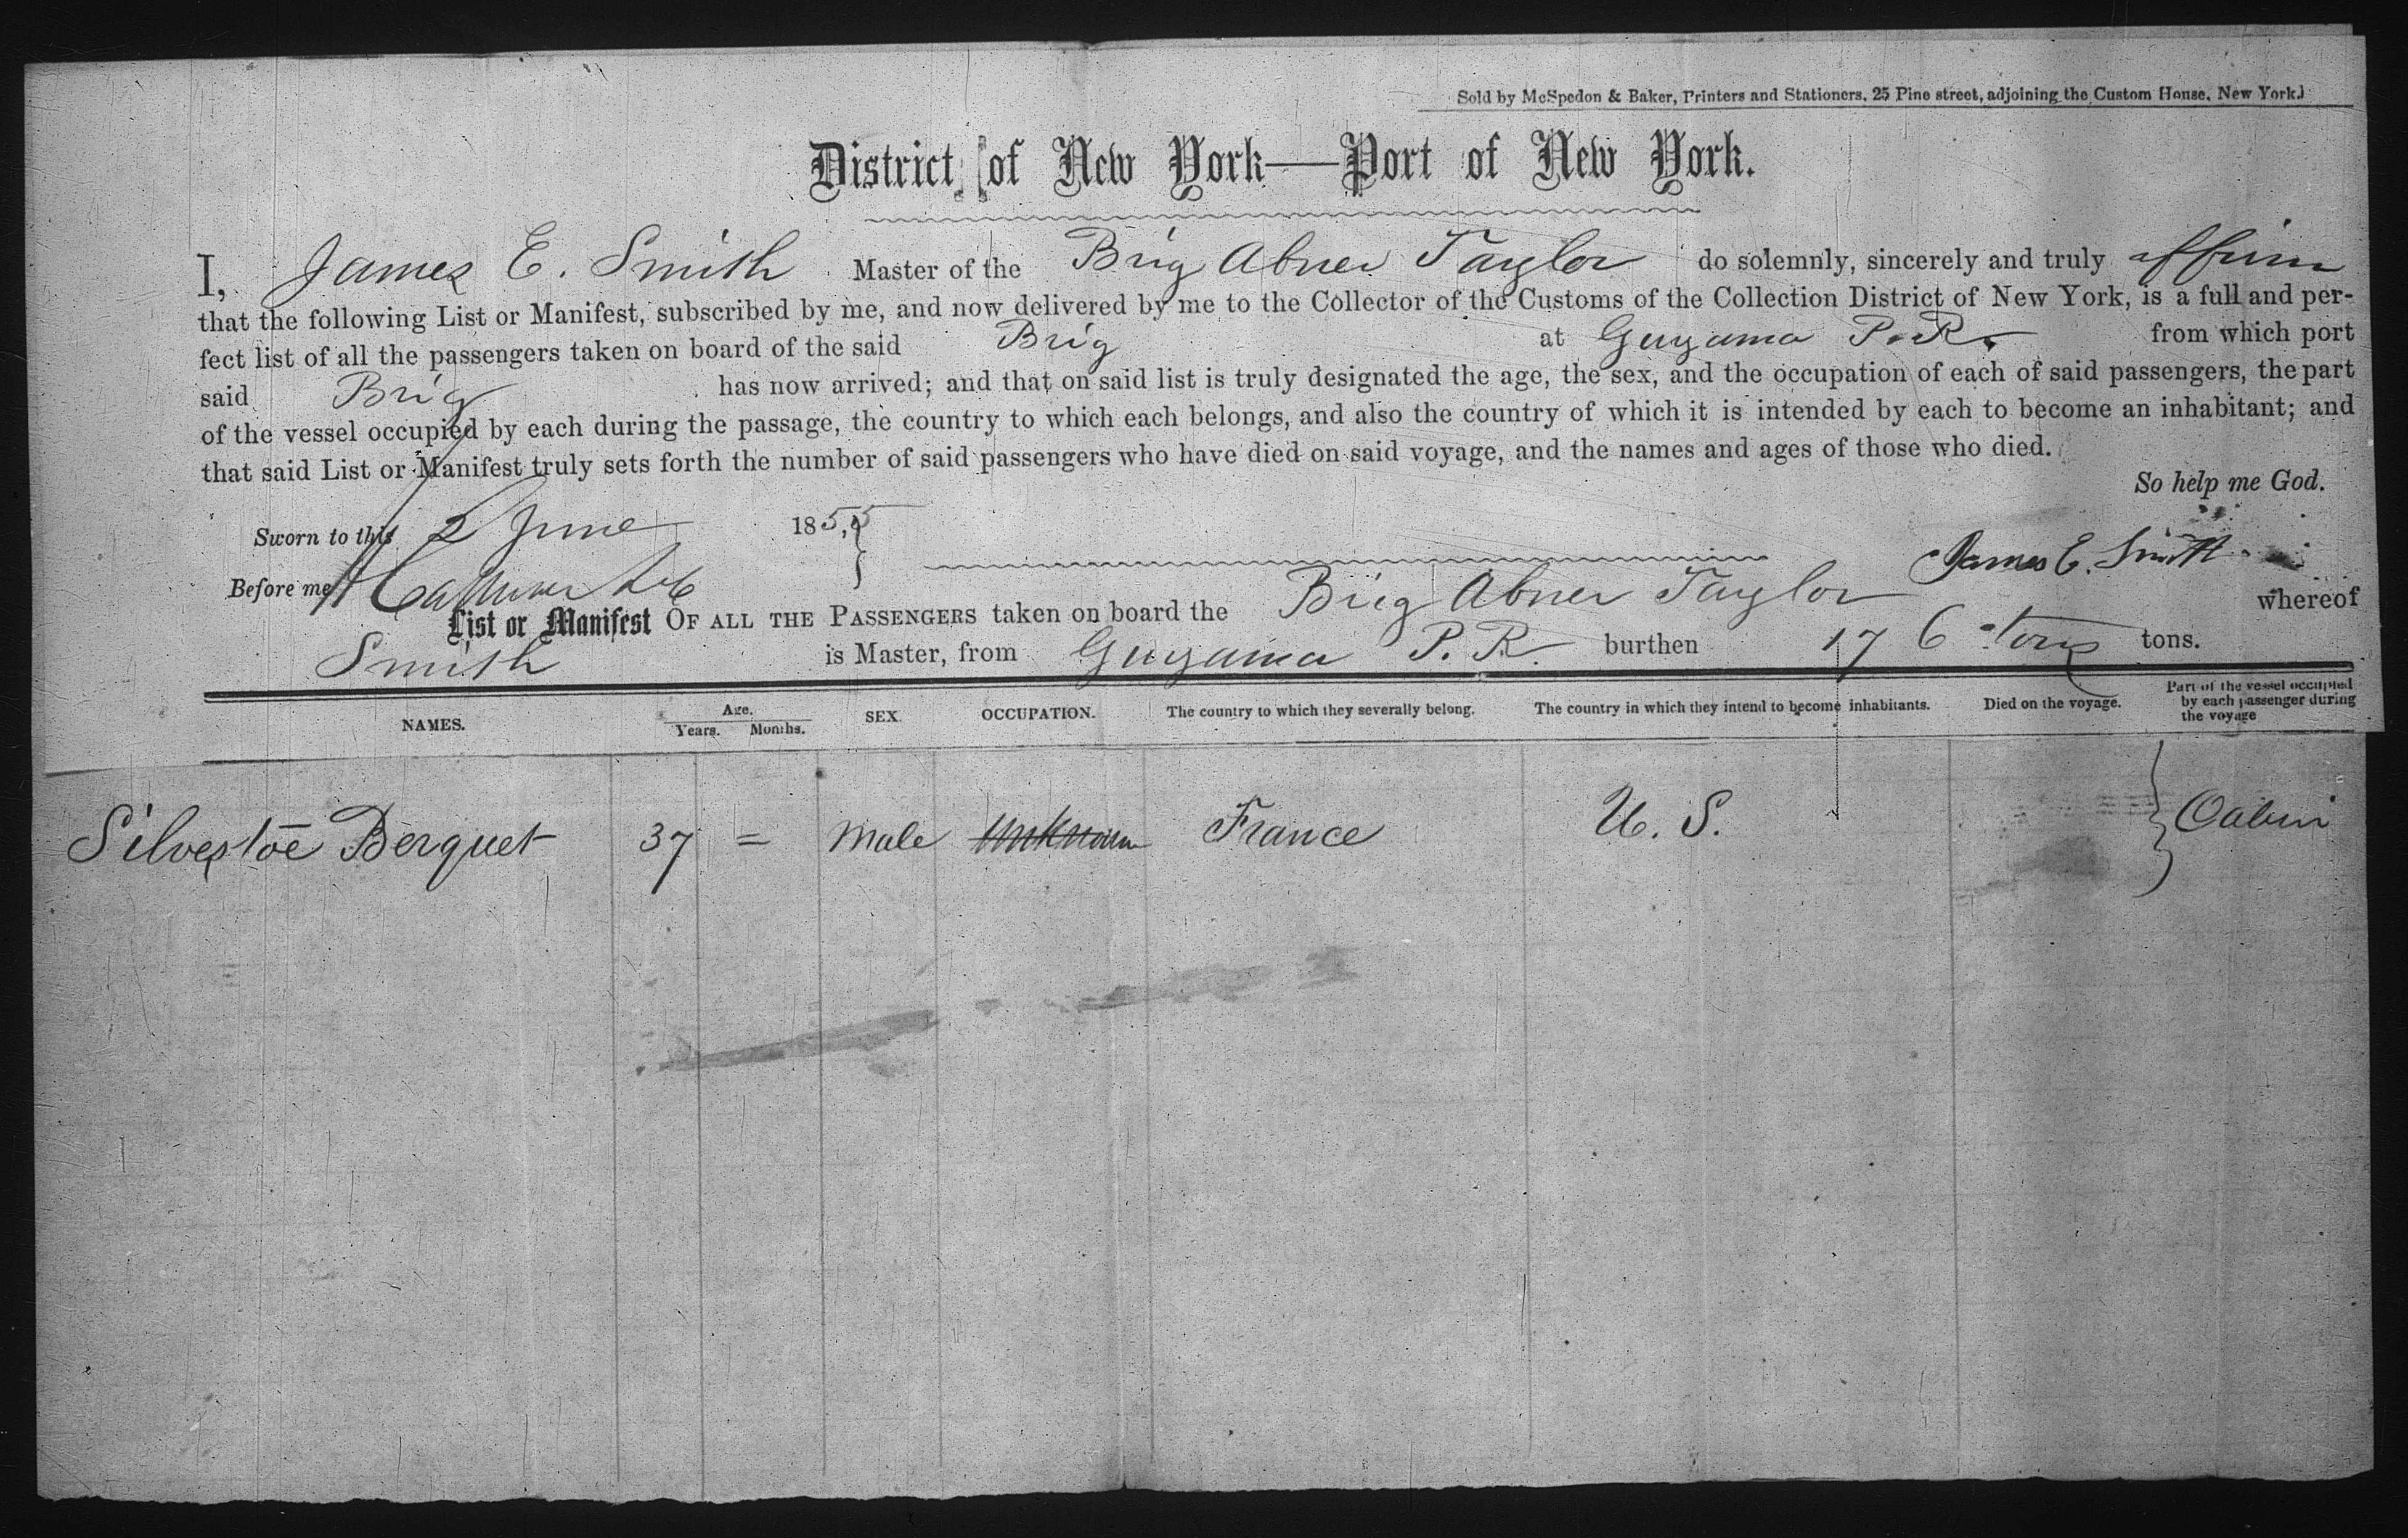 Sold by McSpedon & Baker, Printers and Stationers, 25 Pine street, adjoining the Custom House, New York.
District of New York—Port of New York.
I, James E. Smith Master of the Brig Abner Taylor do solemnly, sincerely and truly affirm
that the following List or Manifest, subscribed by me, and now delivered by me to the Collector of the Customs of the Collection District of New York, is a full and per-
fect list of all the passengers taken on board of the said Brig at Guyama P. R. from which port
said Brig has now arrived; and that on said list is truly designated the age, the sex, and the occupation of each of said passengers, the part
of the vessel occupied by each during the passage, the country to which each belongs, and also the country of which it is intended by each to become an inhabitant; and
that said List or Manifest truly sets forth the number of said passengers who have died on said voyage, and the names and ages of those who died.
So help me God.
Sworn to this 2 June 1855,
James E. Smith
Before me
List or Manifest OF ALL THE PASSENGERS taken on board the Brig Abner Taylor whereof
Smith is Master, from Guyama P. R. burthen 176 tons tons.
NAMES. Age. Years. Months. SEX. OCCUPATION. The country to which they severally belong. The country in which they intend to become inhabitants. Died on the voyage. Part of the vessel occupied by each passenger during the voyage
Berquet 37 = male Unknown France U. S. Cabin